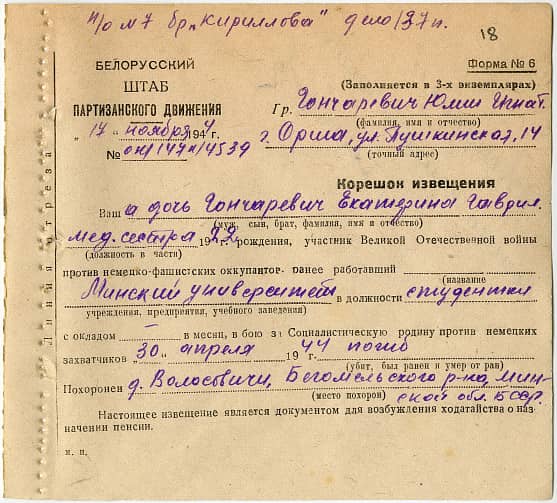 п/о м 7 бр. „Кириллова" дело 137 п.
18
БЕЛОРУССКИЙ
ШТАБ
ПАРТИЗАНСКОГО ДВИЖЕНИЯ
„ 17 „ ноября 194 4 г.
№
Форма № 6
(Заполняется в 3-х экземплярах)
Гр. Гончаревич Юлии Игнат.
(фамилия, имя и отчество)
г. Орша, ул. Пушкинская, 14
(точный адрес)
Линия отреза
Корешок извещения
Ваш а дочь Гончаревич Екатерина Гаврил.
(муж, сын, брат, фамилия, имя и отчество)
мед. сестра 19 22 г. рождения, участник Великой Отечественной войны
(должность в части)
против немецко-фашистских оккупантов. ранее работавший
(название
Минский университет в должности студентки
учреждения, предприятия, учебного заведения)
с окладом — в месяц, в бою за Социалистическую родину против немецких
захватчиков „ 30 „ апреля 19 44 г. погиб
(убит, был ранен и умер от ран)
Похоронен д. Волосовичи, Бегомельского р-на, Мин-
(место похорон) ской обл. БССР.
Настоящее извещение является документом для возбуждения ходатайства о наз-
начении пенсии.
м. п.